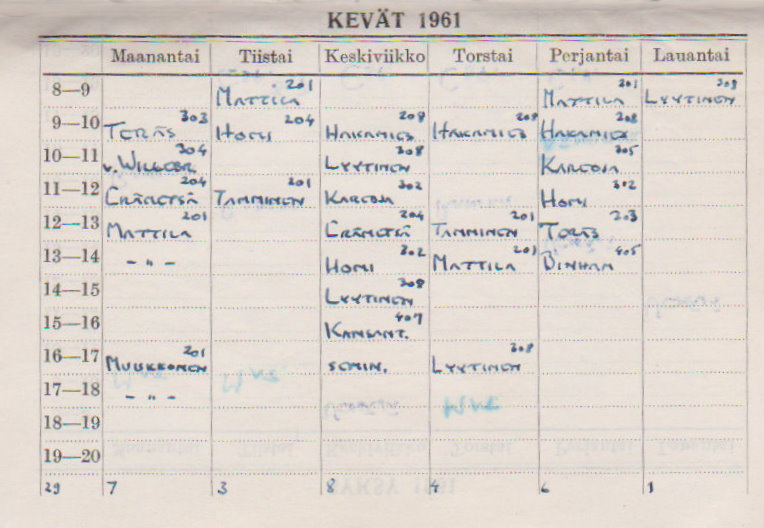 KEVÄT 1961
Maanantai Tiistai Keskiviikko Torstai Perjantai Lauantai
8—9 MATTILA 201 MATTILA 201 LYYTINEN 308
9—10 TERÄS 303 HOMI 204 HAKAMIES 208 HAKAMIES 208 HAKAMIES 208
10—11 v. WILLEBR. 304 LYYTINEN 308 KARLOJA 305
11—12 ERÄMETSÄ 204 TAMMINEN 201 KARLOJA 302 HOMI 302
12—13 MATTILA 201 ERÄMETSÄ 204 TAMMINEN 201 TERÄS 203
13—14 - " - HOMI 302 MATTILA 201 BINHAM 405
14—15 LYYTINEN 308
15—16 KANSANT. 407
16—17 MUUKKONEN 201 SEMIN. LYYTINEN 308
17—18 - " -
18—19
19—20
29 7 3 8 4 6 1